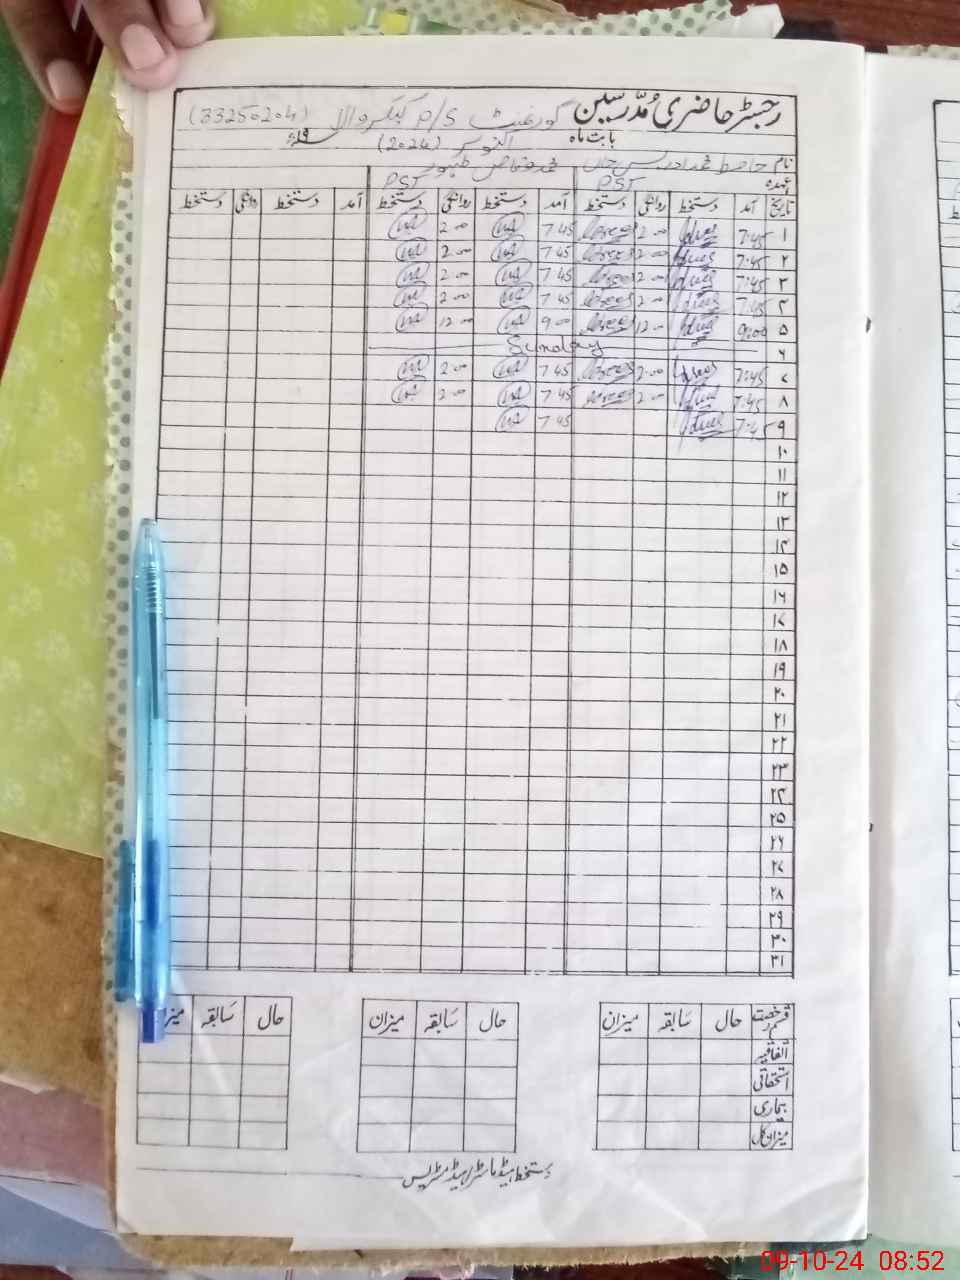 رجسٹر حاضری مدرسین گورنمنٹ P/S (33250204)
بابت ماہ اکتوبر (2024) ۱۹ء
نام حافظ محمد ادریس خان محمد وقاص ظہور
عہدہ PST PST
تاریخ آمد دستخط روانگی دستخط آمد دستخط روانگی دستخط آمد دستخط روانگی دستخط
۱ 7:45 2:00 7 45 2:00
۲ 7:45 2:00 7 45 2:00
۳ 7:45 2:00 7 45 2:00
۴ 7:45 2:00 7 45 2:00
۵ 9:00 12:00 9 00 12:00
۶ Sunday
۷ 7:45 2:00 7 45 2:00
۸ 7:45 2:00 7 45 2:00
۹ 7:45 7 45
۱۰
۱۱
۱۲
۱۳
۱۴
۱۵
۱۶
۱۷
۱۸
۱۹
۲۰
۲۱
۲۲
۲۳
۲۴
۲۵
۲۶
۲۷
۲۸
۲۹
۳۰
۳۱
قسم رخصت حال سابقہ میزان حال سابقہ میزان حال سابقہ میزان
اتفاقیہ
استحقاقی
بیماری
میزان کل
دستخط ہیڈ ماسٹر/ہیڈ مسٹریس
09-10-24 08:52